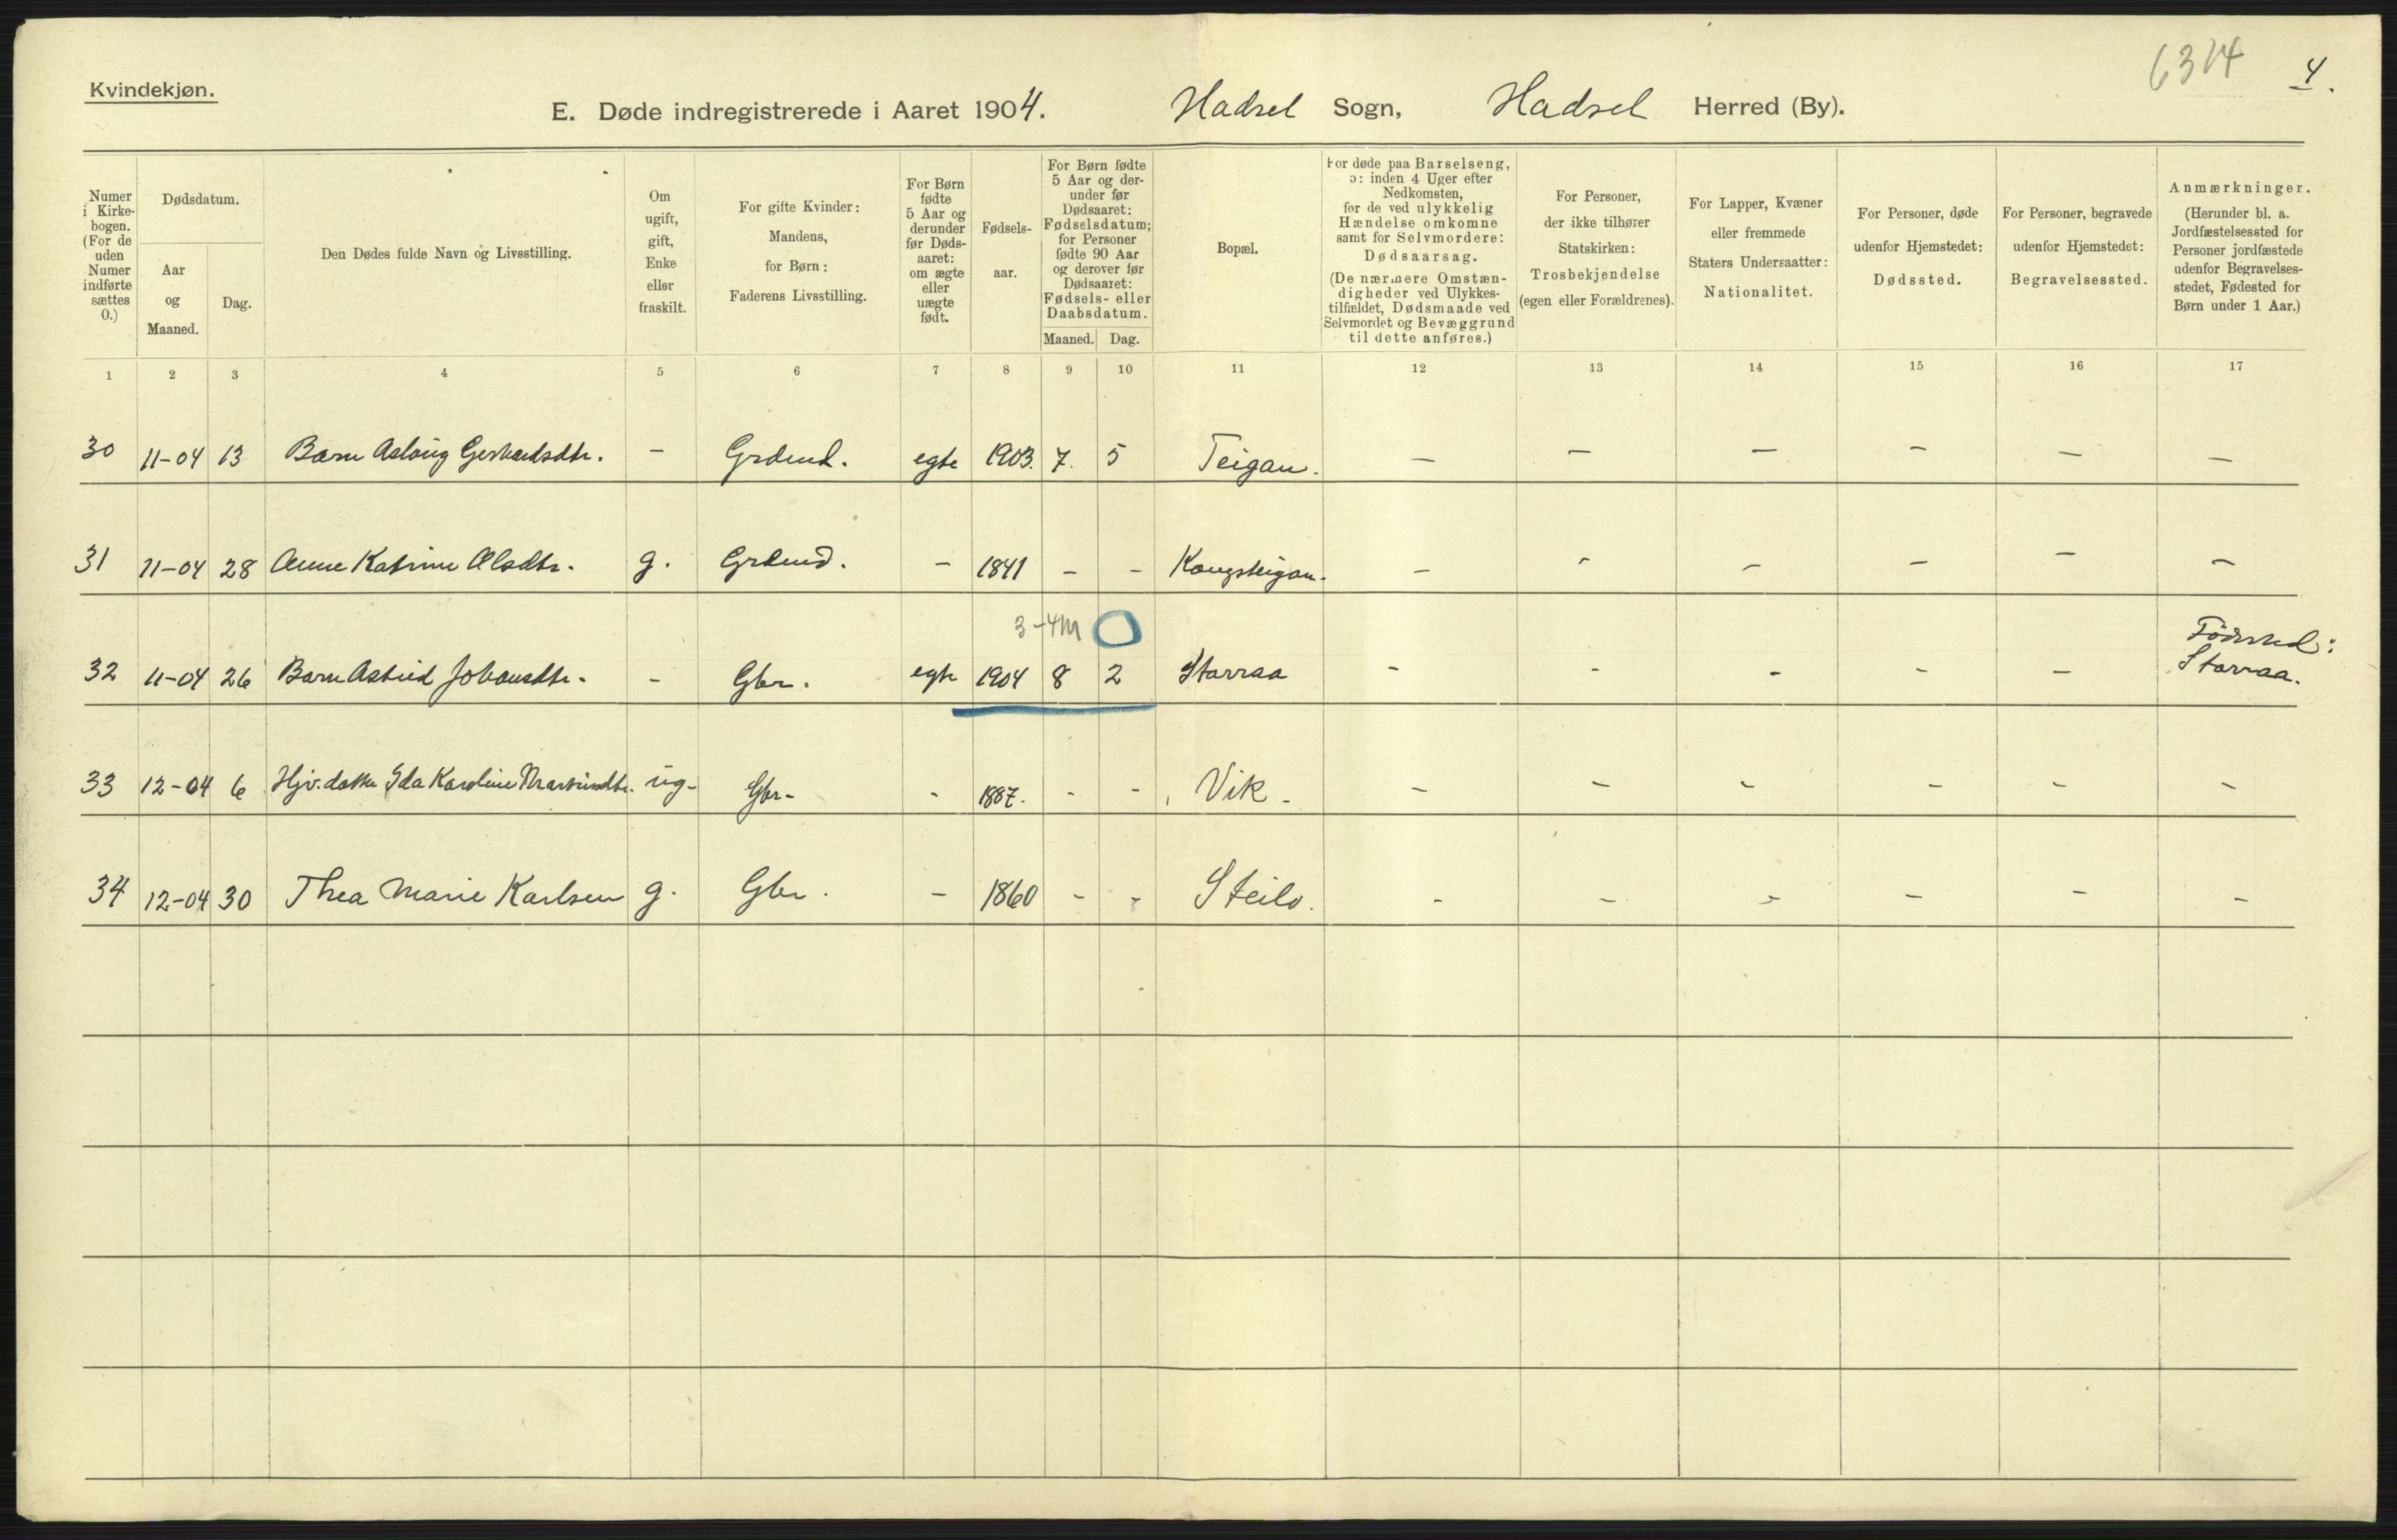 6314
4.
Kvindekjøn.
E. Døde indregistrerede i Aaret 1904. Hadsel Sogn, Hadsel Herred (By).
Numer i Kirkebogen. (For de uden Numer indførte sættes 0.)
Dødsdatum.
Aar og Maaned.
Dag.
Den Dødes fulde Navn og Livsstilling.
Om ugift, gift, Enke eller fraskilt.
For gifte Kvinder: Mandens, for Børn: Faderens Livsstilling.
For Børn fødte 5 Aar og derunder før Dødsaaret: om ægte eller uægte født.
Fødselsaar.
For Børn fødte 5 Aar og derunder før Dødsaaret: Fødselsdatum; for Personer fødte 90 Aar og derover før Dødsaaret: Fødsels- eller Daabsdatum.
Maaned. Dag.
Bopæl.
For døde paa Barselseng, ɔ: inden 4 Uger efter Nedkomsten, for de ved ulykkelig Hændelse omkomne samt for Selvmordere: Dødsaarsag. (De nærmere Omstændigheder ved Ulykkestilfældet, Dødsmaade ved Selvmordet og Bevæggrund til dette anføres.)
For Personer, der ikke tilhører Statskirken: Trosbekjendelse (egen eller Forældrenes).
For Lapper, Kvæner eller fremmede Staters Undersaatter: Nationalitet.
For Personer, døde udenfor Hjemstedet: Dødssted.
For Personer, begravede udenfor Hjemstedet: Begravelsessted.
Anmærkninger. (Herunder bl. a. Jordfæstelsessted for Personer jordfæstede udenfor Begravelsesstedet, Fødested for Børn under 1 Aar.)
1 2 3 4 5 6 7 8 9 10 11 12 13 14 15 16 17
30 11-04 13 Barn Aslaug Gerhardsdtr. - egte 1903. 7. 5 Teigan. - - - - - -
31 11-04 28 Anne Katrine Olsdtr. g. - 1841 - - Kongsteigan. - - - - - -
3-4M
32 11-04 26 Barn Astrid Johansdtr. - Gbr. egte 1904 8 2 Starraa - - - - - Födested: Starraa.
33 12-04 6 Hjv. datter Ida Karoline ug- Gbr- - 1887. - - Vik - - - - - - -
34 12-04 30 Thea Marie Karlsen g. Gbr. - 1860 - - Steilo. - - - - - -